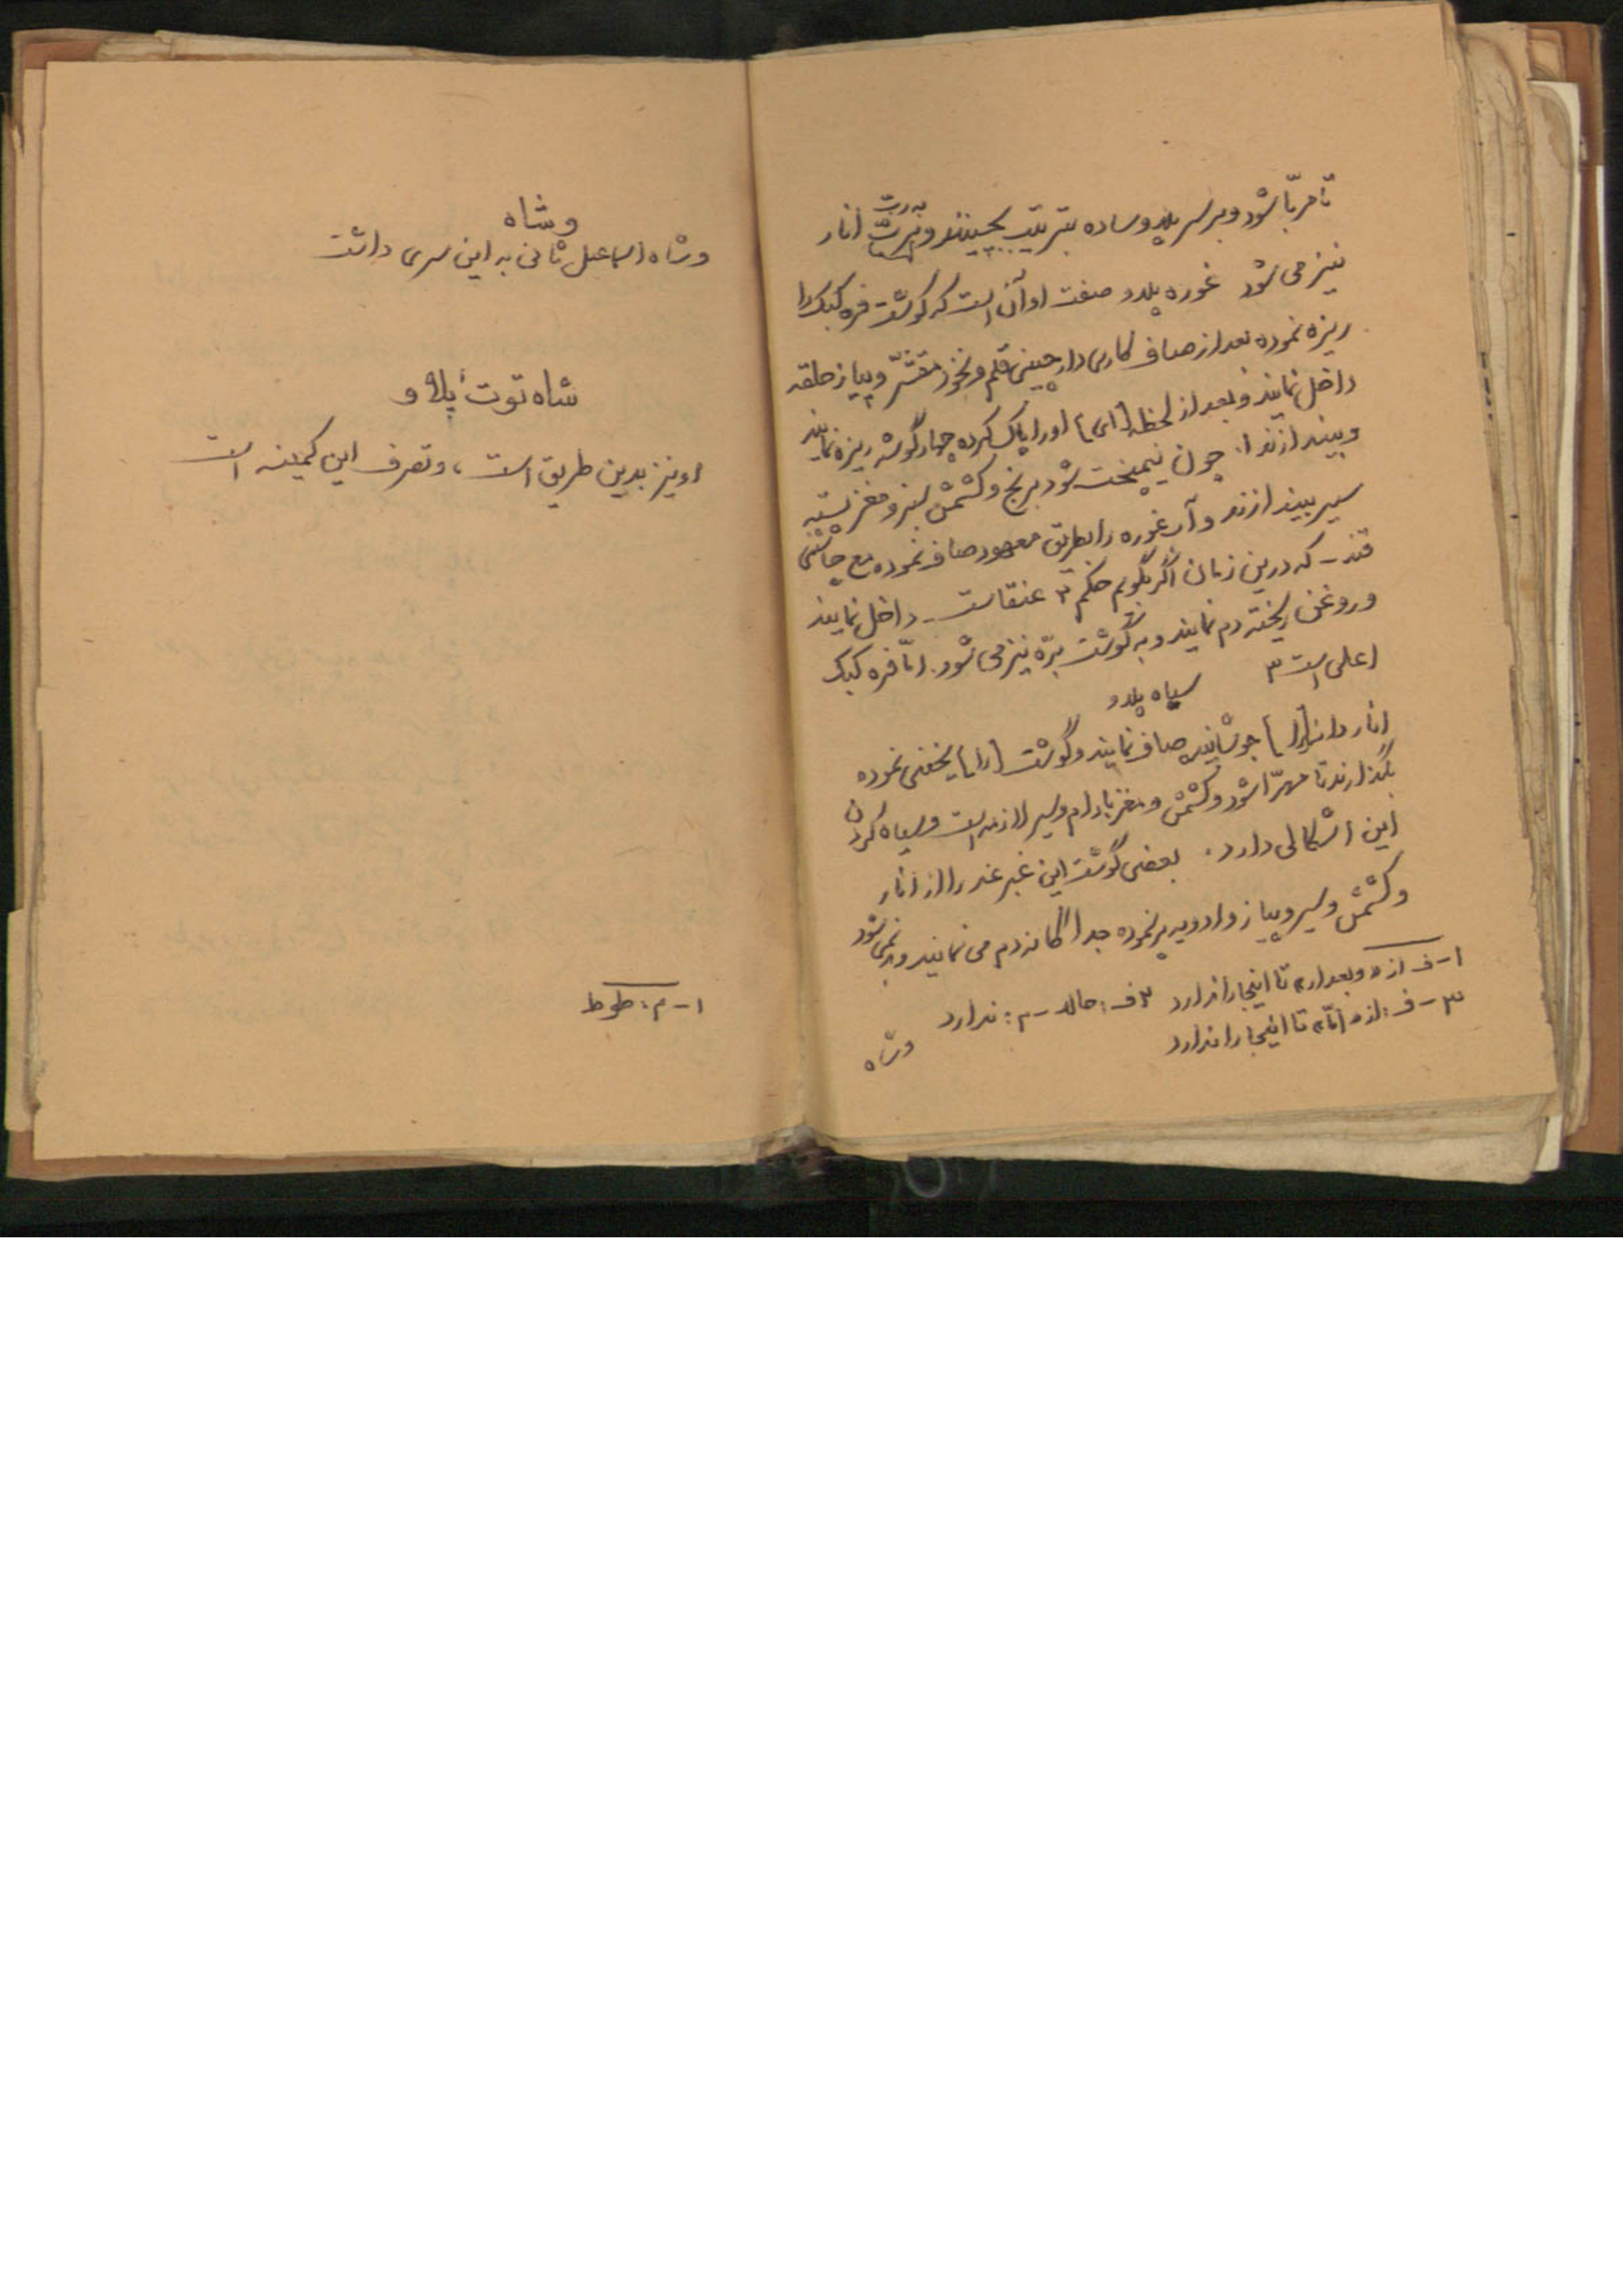 تا مربّا شود و بر سر پلاو ساده بترتیب بچینند و برتّ انار
به ربّ
نیز می شود غوره پلاو صفت او آن است که گوشت فره کبک را
ریزه نموده بعد از صاف کاری دارچینی قلم و نخود مقشّر و پیاز حلقه
داخل نمایند و بعد از لحظه [ای] او را پاک کرده چهار گوشه ریزه نمایند
و بیندازند ۱. چون نیمپخت شود برنج و کشمش سبز و مغز پسته
سیر بیندازند و آب غوره را بطریق معهود صاف نموده مع چاشنی
قند - که درین زمان اگر بگویم حکم ۲ عنقاست - داخل نمایند
و روغن ریخته دم نمایند و به گوشت برّه نیز می شود. امّا فره کبک
اعلی است ۳
سیاه پلاو
انار دانه [را] جوشانیده صاف نمایند و گوشت [را] یخنی نموده
بگذارند تا مهرّا شود و کشمش و مغز بادام و سیر لازمه است و سیاه کردن
این اشکالی دارد. بعضی گوشت این غیر غدر را از انار
و کشمش و سیر و پیاز و ادویه پر نموده جداگانه دم می نمایند و بد نمی شود
۱ - ف از «و بعد از» تا اینجا را ندارد ۲ ف: حالا - م: ندارد
۳ - ف: از «امّا» تا اینجا را ندارد
و شاه
و شاه
و شاه اسماعیل ثانی به این سری داشت
شاه توت پلاو
او نیز بدین طریق است، و تصرف این کمینه است
۱ - م: طوط